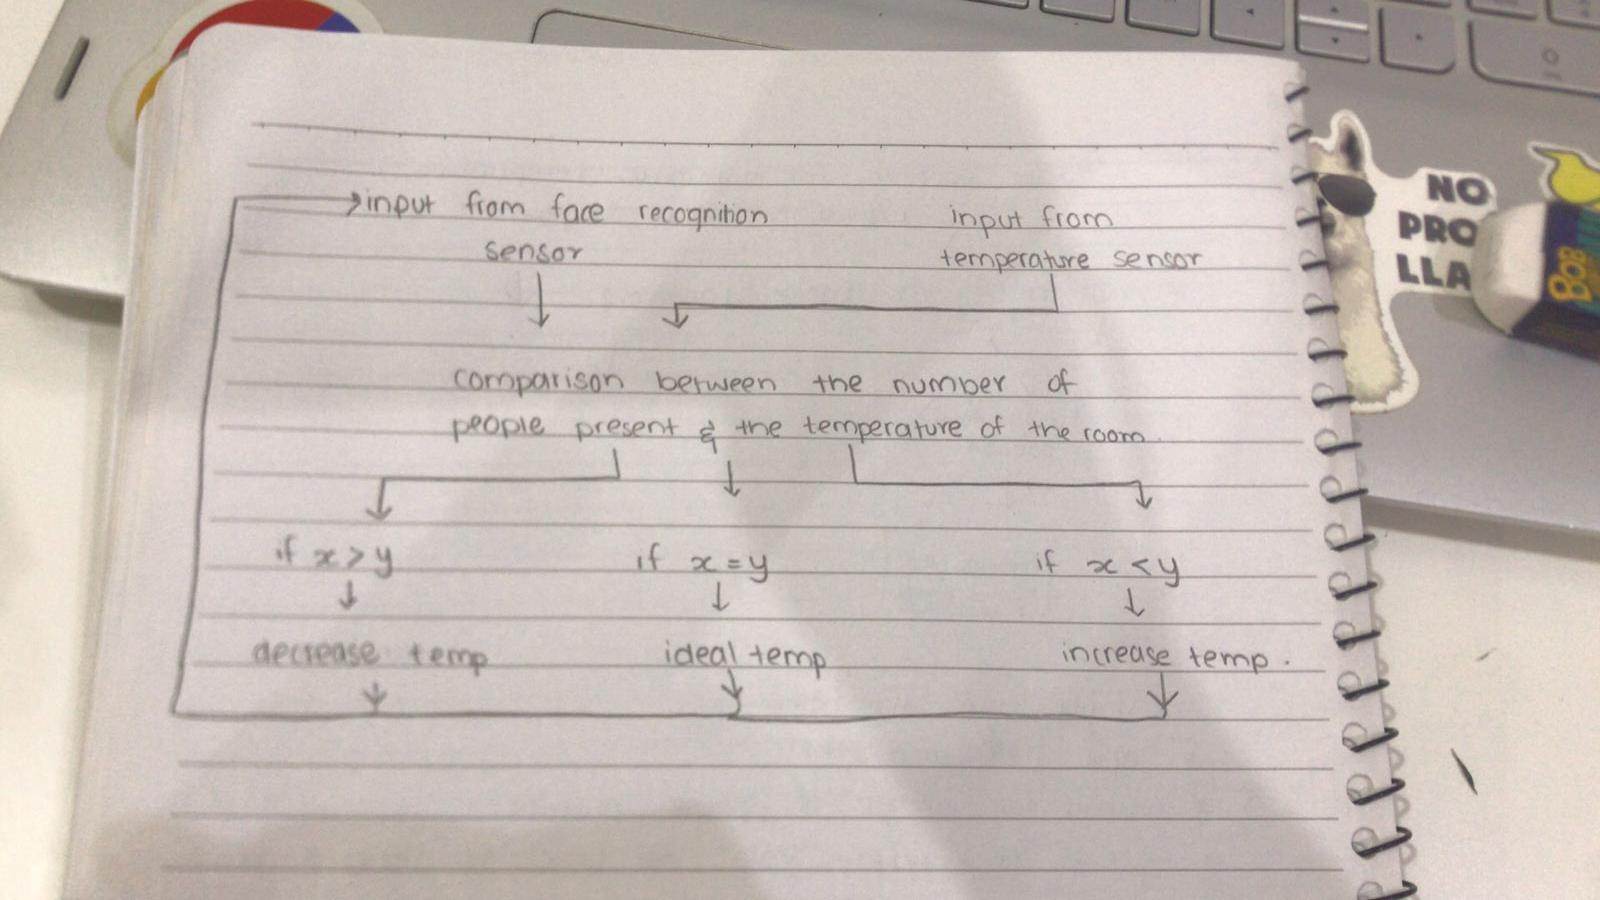 input from face recognition
sensor
input from
temperature sensor
comparison between the number of
people present & the temperature of the room.
if x > y
if x = y
if x < y
decrease temp
ideal temp
increase temp.
NO
PRO
LLA
BOB